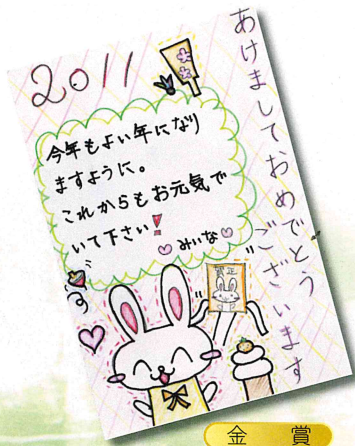 2011
あけましておめでとう
ございます
今年もよい年になり
ますように。
これからもお元気で
いて下さい！
みいな
賀正
金 賞